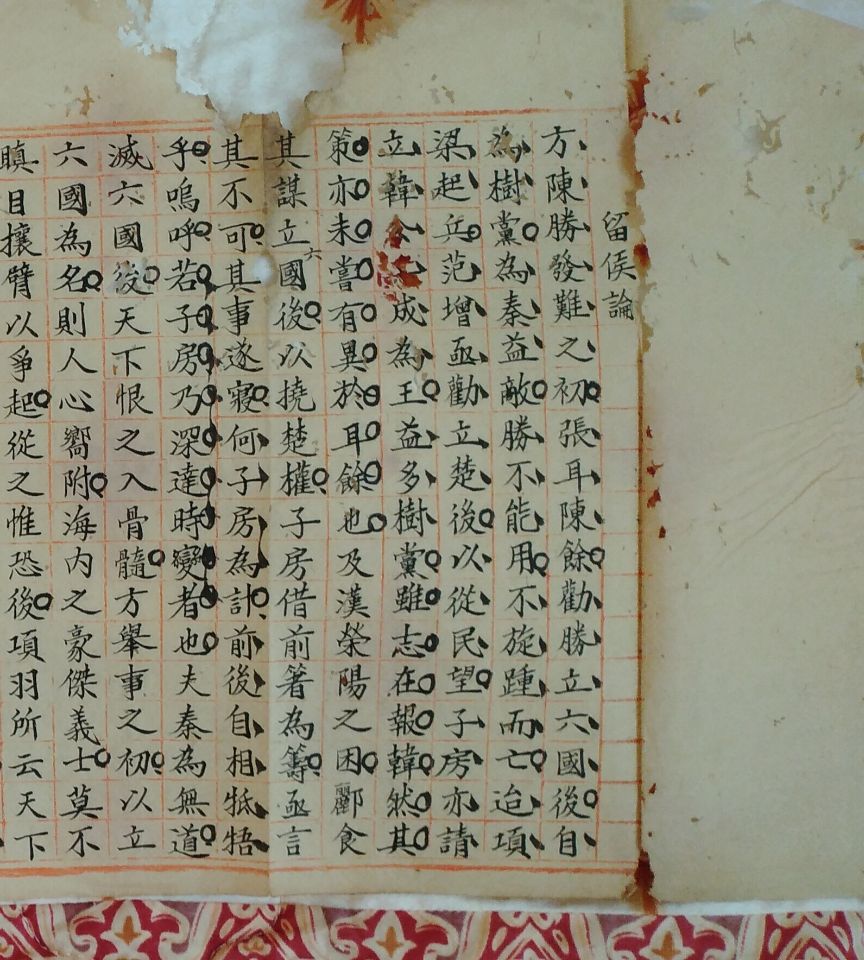 留侯論
方陳勝發難之初張耳陳餘勸勝立六國後自
為樹黨為秦益敵勝不能用不旋踵而亡迨項
梁起兵范增亟勸立楚後以從民望子房亦請
立韓公成為王益多樹黨雖志在報韓然其
策亦未嘗有異於耳餘也及漢榮陽之困酈食
其謀立六國後以撓楚權子房借前箸為籌亟言
其不可其事遂寢何子房為計前後自相牴牾
乎嗚呼若子房乃深達時變者也夫秦為無道
滅六國後天下恨之入骨髓方舉事之初以立
六國為名則人心嚮附海內之豪傑義士莫不
瞋目攘臂以爭起從之惟恐後項羽所云天下